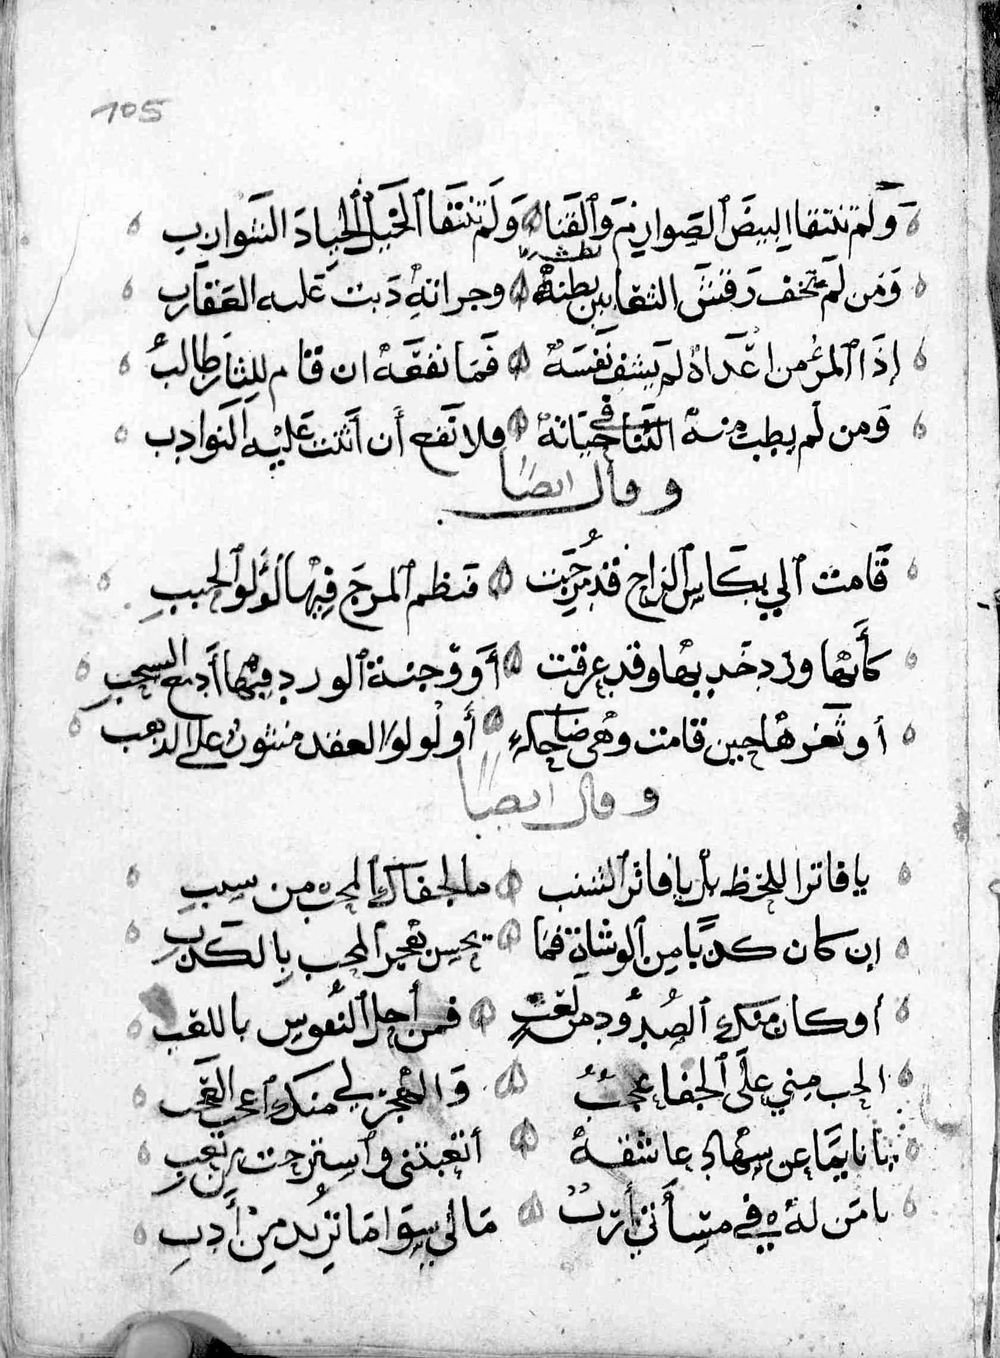 105
وَلَمْ تنتقا البيضَ الصوارِمَ وَالقَنا وَلَمْ تنتقا الخيل الجيادَ الشوارب
وَمن لَم تخف رقش الثعابين بطشه وجراته دَبت عليه العقارب
إذَا المرءُ من اعداهُ لم يشف نفسَهُ فَما نفعَهُ ان قام للثار طالبُ
وَمن لم يطب منه الثنا في حياته فلا نفع أن أثنت عليه النوادب
وقال ايضا
قَامت الي بكاس الراح قد مُزجت فنظم المرج فيها لؤلؤ الحبب
كأنها ورد خد بها وقد عرقت أو وجنة الورد فيها أدمع السحب
أو ثغرها حين قامت وهي ضاحكة أو لولو العقد منثورٌ على الذهب
وقال ايضا
يا فاترا اللحظ بل يا فاتر الشنب ما لجفاك المحب من سبب
إن كان كذبًا من الوشاة فما يحسن هجر المحب بالكذب
أو كان منك الصُدود من لعب فمن أحل النفوس باللعب
الحب مني على الجفا عجبٌ وَالهجر لي منك اعجب العجب
يا نايما عن سهاد عاشقه أتعبتني واسترحت من تعب
يا مَن لهُ في مسأتي أربٌ مَالي سوا مَا تريد من أدب